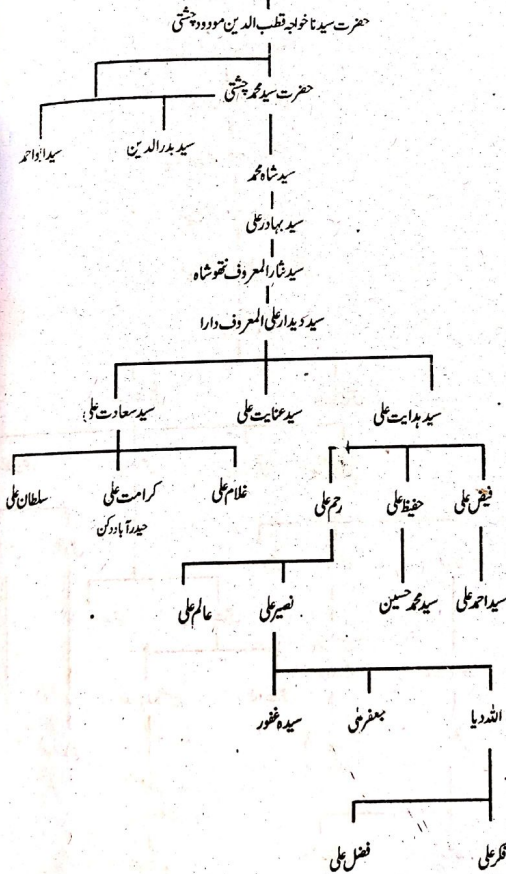 حضرت سیدنا خواجہ قطب الدین مودود چشتی
حضرت سید محمد چشتی
سید بدر الدین
سید ابو احمد
سید شاہ محمد
سید بہادر علی
سید نثار المعروف نتھو شاہ
سید دیدار علی المعروف دارا
سید ہدایت علی
سید عنایت علی
سید سعادت علی
فیض علی
حفیظ علی
رحم علی
غلام علی
کرامت علی
حیدرآباد دکن
سلطان علی
سید احمد علی
سید محمد حسین
نصیر علی
عالم علی
اللہ دیا
سیدہ غفور
فکر علی
فضل علی